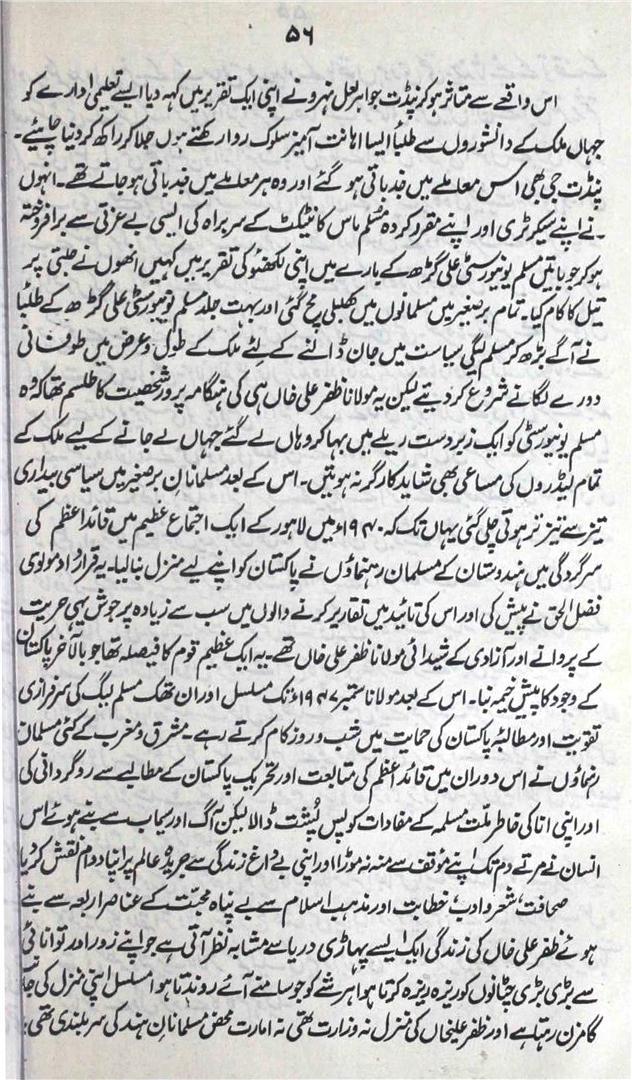 ۵۶
اس واقعے سے متاثر ہو کر پنڈت جواہر لعل نہرو نے اپنی ایک تقریر میں کہہ دیا ایسے تعلیمی ادارے کو
جہاں ملک کے دانشوروں سے طلبأ ایسا اہانت آمیز سلوک روا رکھتے ہوں جلا کر راکھ کر دینا چاہیئے۔
پنڈت جی بھی اس معاملے میں جذباتی ہو گئے اور وہ ہر معاملے میں جذباتی ہو جاتے تھے۔ انہوں
نے اپنے سیکرٹری اور اپنے مقرر کردہ مسلم ماس کانٹیکٹ کے سربراہ کی ایسی بے عزتی سے برافروختہ
ہو کر جو باتیں مسلم یونیورسٹی علی گڑھ کے بارے میں اپنی لکھنؤ کی تقریر میں کہیں انھوں نے جلتی پر
تیل کا کام کیا۔ تمام برصغیر میں مسلمانوں میں کھلبلی مچ گئی اور بہت جلد مسلم یونیورسٹی علی گڑھ کے طلبأ
نے آگے بڑھ کر مسلم لیگی سیاست میں جان ڈالنے کے لئے ملک کے طول و عرض میں طوفانی
دورے لگانے شروع کر دیتے لیکن یہ مولانا ظفر علی خاں ہی کی ہنگامہ پرور شخصیت کا طلسم تھا کہ وہ
مسلم یونیورسٹی کو ایک زبردست ریلے میں بہا کر وہاں لے گئے جہاں لے جانے کے لیے ملک کے
تمام لیڈروں کی مساعی بھی شاید کارگر نہ ہوتیں۔ اس کے بعد مسلمانانِ برصغیر میں سیاسی بیداری
تیز سے تیز تر ہوتی چلی گئی یہاں تک کہ ۱۹۴۰ء میں لاہور کے ایک اجتماع عظیم میں قائد اعظم کی
سرکردگی میں ہندوستان کے مسلمان رہنماؤں نے پاکستان کو اپنے لیے منزل بنا لیا۔ یہ قرارداد مولوی
فضل الحق نے پیش کی اور اس کی تائید میں تقاریر کرنے والوں میں سب سے زیادہ پرجوش یہی حریت
کے پروانے اور آزادی کے شیدائی مولانا ظفر علی خاں تھے۔ یہ ایک عظیم قوم کا فیصلہ تھا جو بالآخر پاکستان
کے وجود کا پیش خیمہ بنا۔ اس کے بعد مولانا ستمبر ۱۹۴۷ء تک مسلسل اور ان تھک مسلم لیگ کی سرفرازی
تقویت اور مطالبۂ پاکستان کی حمایت میں شب و روز کام کرتے رہے۔ مشرق و مغرب کے کئی مسلمان
رہنماؤں نے اس دوران میں قائد اعظم کی متابعت اور تحریک پاکستان کے مطالبے سے روگردانی کی
اور اپنی انا کی خاطر ملّت مسلمہ کے مفادات کو پس پُشت ڈالا لیکن آگ اور سیماب سے بنے ہوئے اس
انسان نے مرتے دم تک اپنے مؤقف سے منہ نہ موڑا اور اپنی بے داغ زندگی سے جریدۂ عالم پر اپنا دوام نقش کر دیا
صحافت، شعر و ادب، خطابت اور مذہب اسلام سے بے پناہ محبّت کے عناصر اربعہ سے بنے
ہوئے ظفر علی خاں کی زندگی ایک ایسے پہاڑی دریا سے مشابہ نظر آتی ہے جو اپنے زور اور توانائی
سے بڑی بڑی چٹانوں کو ریزہ ریزہ کرتا ہوا ہر شے کو جو سامنے آئے روندتا ہوا مسلسل اپنی منزل کی
گامزن رہتا ہے اور ظفر علیخاں کی منزل نہ وزارت تھی نہ امارت محض مسلمانانِ ہند کی سربلندی تھی